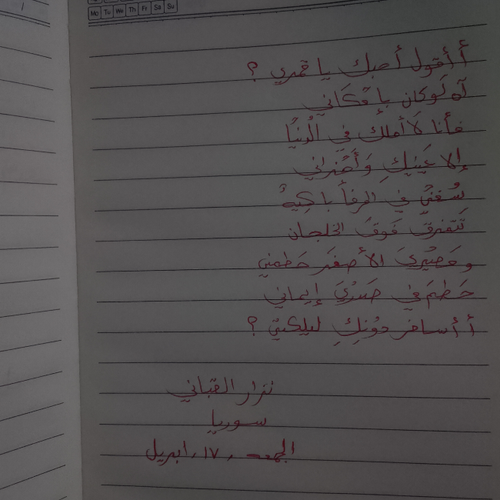 Mo Tu We Th Fr Sa Su
أ أقول أحبك يا قمري ؟
آه لو كان بإمكاني
فأنا لا أملك في الدنيا
إلا عينيك وأحزاني
سفني في المرفأ باكية
تتمزق فوق الخلجان
ومصيري الأصفر حطمني
حطم في صدري إيماني
أ أسافر دونك ليلكتي ؟
نزار القباني
سوريا
الجمعة، ١٧، ابريل